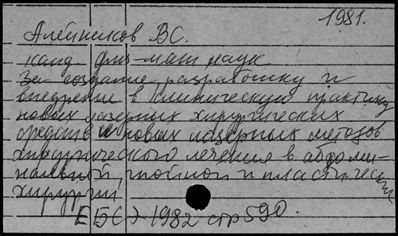 1981.
Алейников В.С.
канд физ-мат наук
За создание, разработку и
внедрение в клиническую практику
новых лазерных хирургических
средств и новых лазерных методов
хирургического лечения в абдоми-
нальной, гнойной и пластической
хирургии
ЕБСЭ-1982 стр 590.